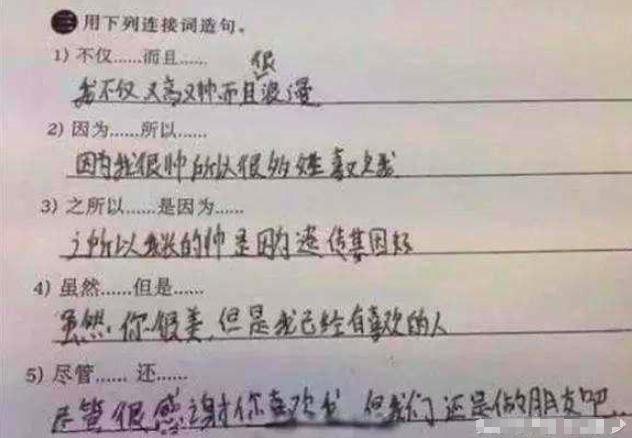 三 用下列连接词造句。
1) 不仅……而且……
很
我不仅又高又帅而且浪漫
2) 因为……所以……
因为我很帅所以很多姓喜欢我
3) 之所以……是因为……
之所以我长的帅是因为遗传基因好
4) 虽然……但是……
虽然,你很美,但是我已经有喜欢的人
5) 尽管…… 还……
尽管很感谢你喜欢我 但我们还是做朋友吧